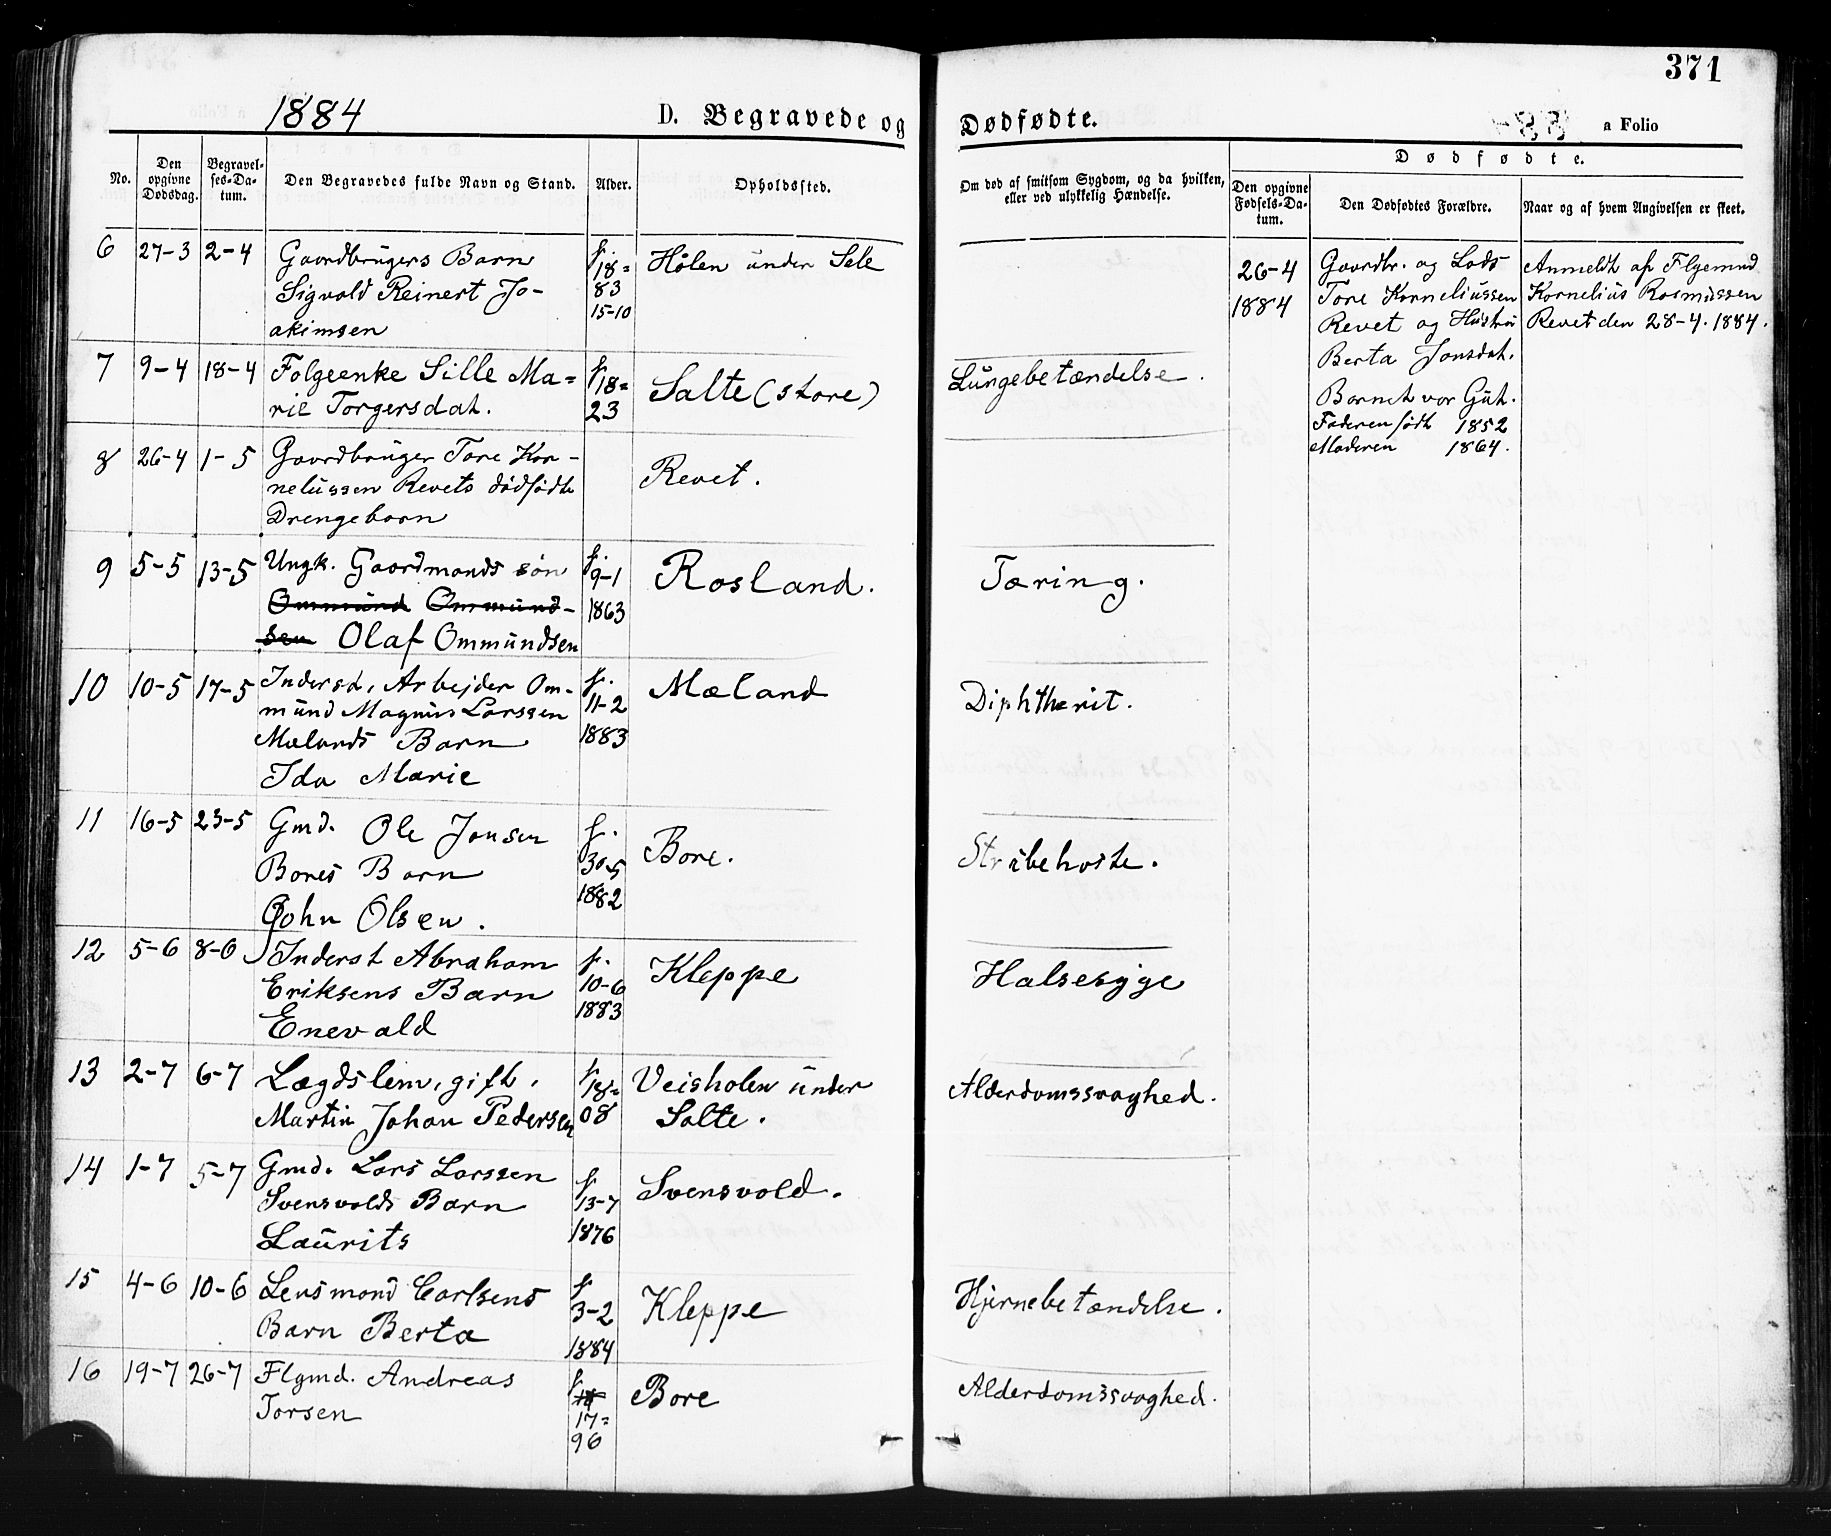 371
1884
D. Begravede og Dødfødte.
a Folio
No.
Den opgivne Dødsdag.
Begravel-ses-Da-tum.
Den Begravedes fulde Navn og Stand.
Alder.
Opholdssted.
Om død af smitsom Sygdom, og da hvilken, eller ved ulykkelig Hændelse.
Dødfødte.
Den opgivne Fødsels-Da-tum.
Den Dødfødtes Forældre.
Naar og af hvem Angivelsen er skeet.
6 27-3 2-4 Gaardbrugers Barn f. 18= Hölen under Sele
Sigvald Reinert Jo- 83
akimsen 15-10
26-4 Gaardbr. og Lods Anmeldt af Flgemnd
1884 Tore Korneliussen Kornelius Rasmussen
Revet og Hustru Revet den 28-4. 1884.
Berta Jonsdat.
Barnet var Gut.
Faderen født 1852
Moderen 1864.
7 9-4 18-4 Folgeenke Sille Ma= f. 18= Salte (store) Lungebetændelse.
rie Torgersdat. 23
8 26-4 1-5 Gaardbruger Tore Kor- Revet.
neliussen Revets dödfödte
Drengebarn
9 5-5 13-5 Ungk. Gaardmands sön f. 9-1 Rosland. Tæring.
Ommund Ommund- 1863
sen Olaf Ommundsen
10 10-5 17-5 Indersd, Arbejder Om- f. Mæland Diphtherit.
mund Magnus Larssen 11-2
Mælands Barn 1883
Ida Marie
11 16-5 23-5 Gmd. Ole Jonsen f. Bore. Strübehoste.
Bores Barn 30-5
John Olsen. 1882
12 5-6 8-6 Inderst Abraham f. Kleppe Halsesyge
Eriksens Barn 10-6
Enevald 1883
13 2-7 6-7 Lægdslem, gift, f. 18= Veisholen under Alderdomssvaghed.
Martin Johan Pedersen 08 Salte.
14 1-7 5-7 Gmd. Lars Larssen f. Svensvold.
Svensvolds Barn 13-7
Laurits 1876
15 4-6 10-6 Lensmand Carlsens f. 3-2 Kleppe Hjernebetændelse.
Barn Berta 1884
16 19-7 26-7 Flgmd. Andreas f. Bore Alderdomssvaghed.
Torsen 17=
96